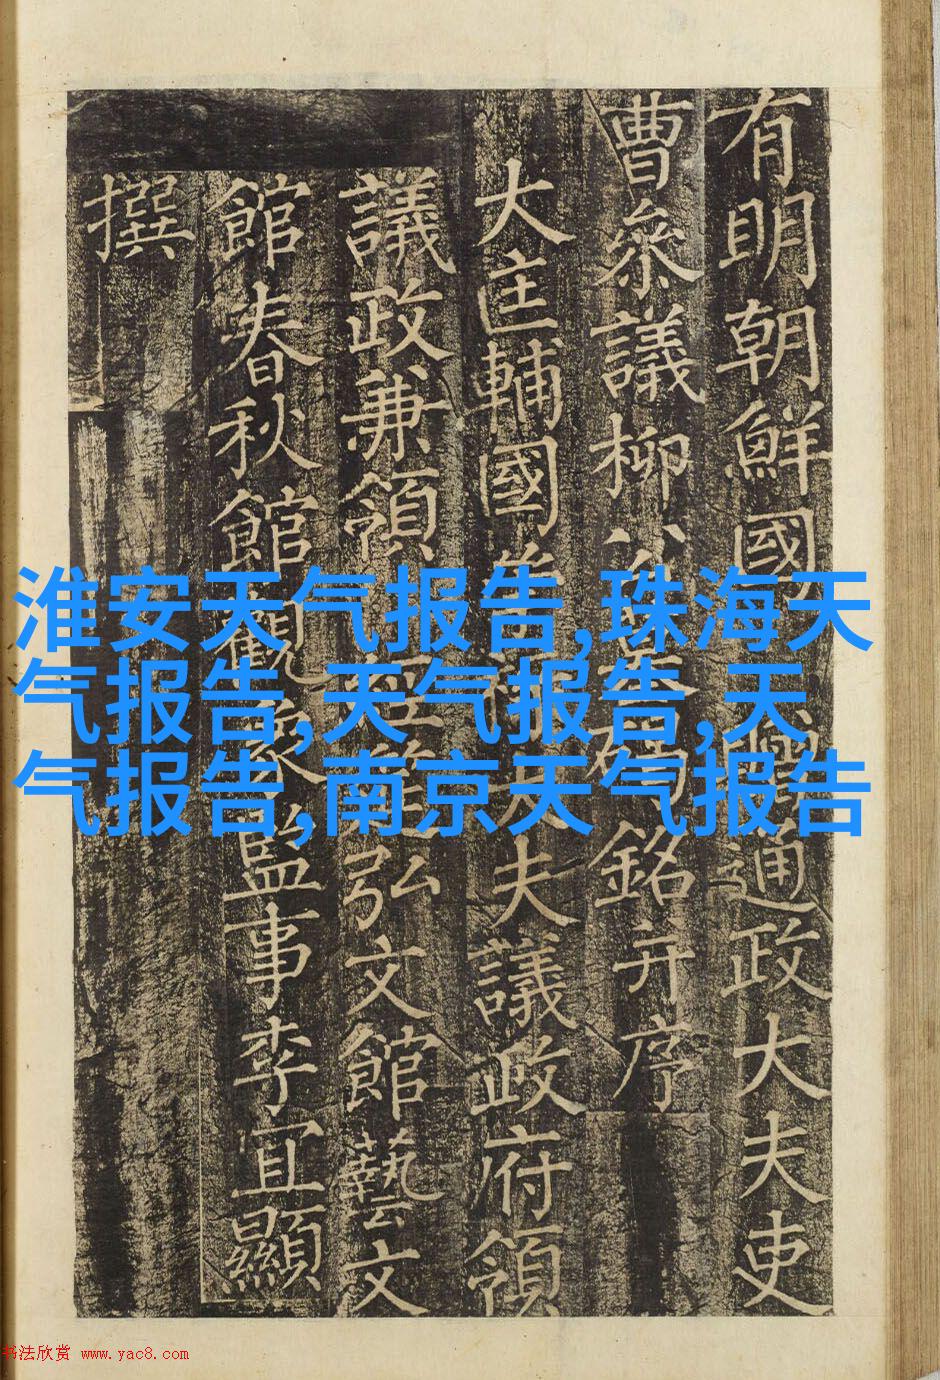 有明朝鮮國通政大夫吏
曹叅議柳公銘并序
大匡輔國夫議政府領
議政兼領弘文館藝文
館春秋館觀監事李宜顯
撰
淮安天气报告,珠海天
气报告,天气报告,天
气报告,南京天气报告
书法欣赏 www.yac8.com